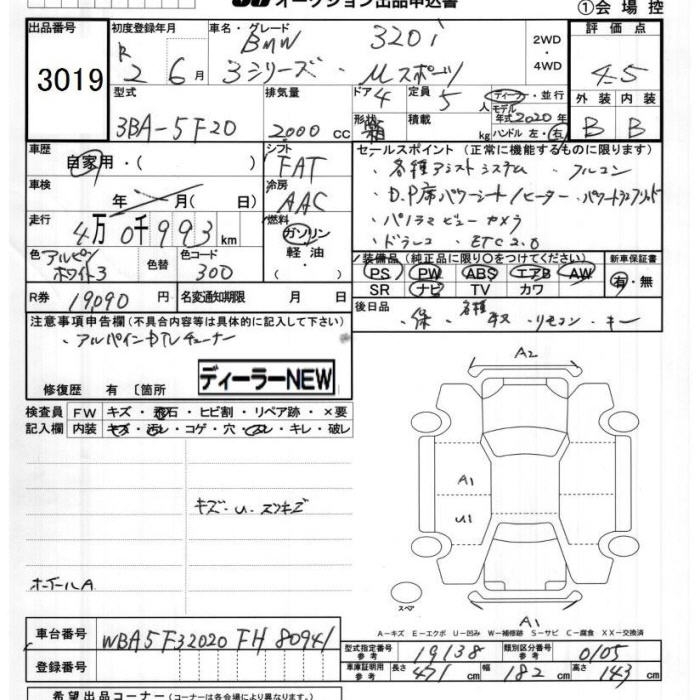 オークション出品申込書
①会場控
出品番号 3019
初度登録年月 R 2 6月
車名・グレード BMW 320i
3シリーズ・Mスポーツ
2WD・4WD
評価点 4.5
型式 3BA-5F20
排気量 2000 cc
ドア 4
定員 5人
形状 箱
積載 kg
ディーラー・並行
モデル年式 2020年
ハンドル 左・右
外装 B
内装 B
車歴 自家用・( )
シフト FAT
車検 年 月( 日)
冷房 AAC
走行 4万0千993km
燃料 ガソリン・軽油・
色 アルピンホワイト3
色替
色コード 300
R券 19090円
名変通知期限 月 日
セールスポイント(正常に機能するものに限ります)
・各種アシストシステム ・フルコン
・D.P席パワーシート/ヒーター・パワートランク
・パノラマビューカメラ
・ドラレコ ・ETC2.0
装備品(純正品に限り○をつけてください)
PS PW ABS エアB AW
SR ナビ TV カワ
新車保証書 有・無
後日品 ・保 ・各種取 ・リモコン ・キー
注意事項申告欄(不具合内容等は具体的に記入して下さい)
・アルパインDTVチューナー
ディーラーNEW
修復歴 有 〔箇所
検査員記入欄
FW キズ・飛石・ヒビ割・リペア跡・×要
内装 キズ・汚レ・コゲ・穴・スレ・キレ・破レ
キズ・U・スリキズ
ホイールA
A2
A1
U1
スペア
A1
A-キズ E-エクボ U-凹み W-補修跡 S-サビ C-腐食 XX-交換済
車台番号 WBA5F32020FH80941
登録番号
型式指定番号参考 19138
類別区分番号参考 0105
車庫証明用参考 長さ 471cm 幅 182cm 高さ 143cm
希望出品コーナー(コーナーは各会場により異なります。)